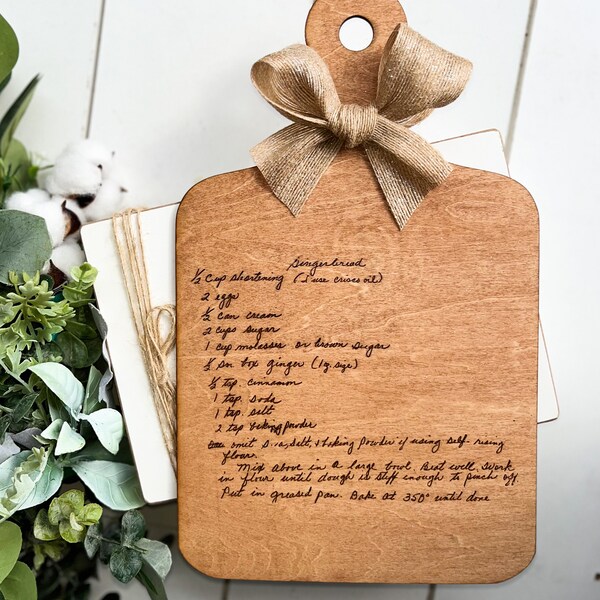 Gingerbread
½ cup shortening (I use crisco oil)
2 eggs
½ can cream
2 cups sugar
1 cup molasses or brown sugar
½ sm box ginger (1 oz. size)
½ tsp. cinnamon
1 tsp. soda
1 tsp. salt
2 tsp baking powder
omit soda, salt, & baking powder if using self-rising
flour.
Mix above in a large bowl. Beat well. Work
in flour until dough is stiff enough to pinch off.
Put in greased pan. Bake at 350° until done